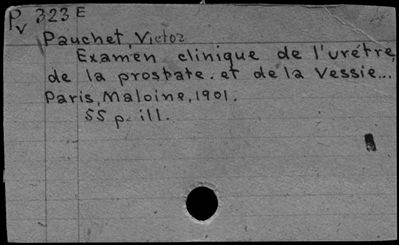 Pv 323 E
Pauchet, Victor
Examen clinique de l'urétre,
de la prostate. et de la Vessie...
Paris, Maloine, 1901.
55 p. ill.